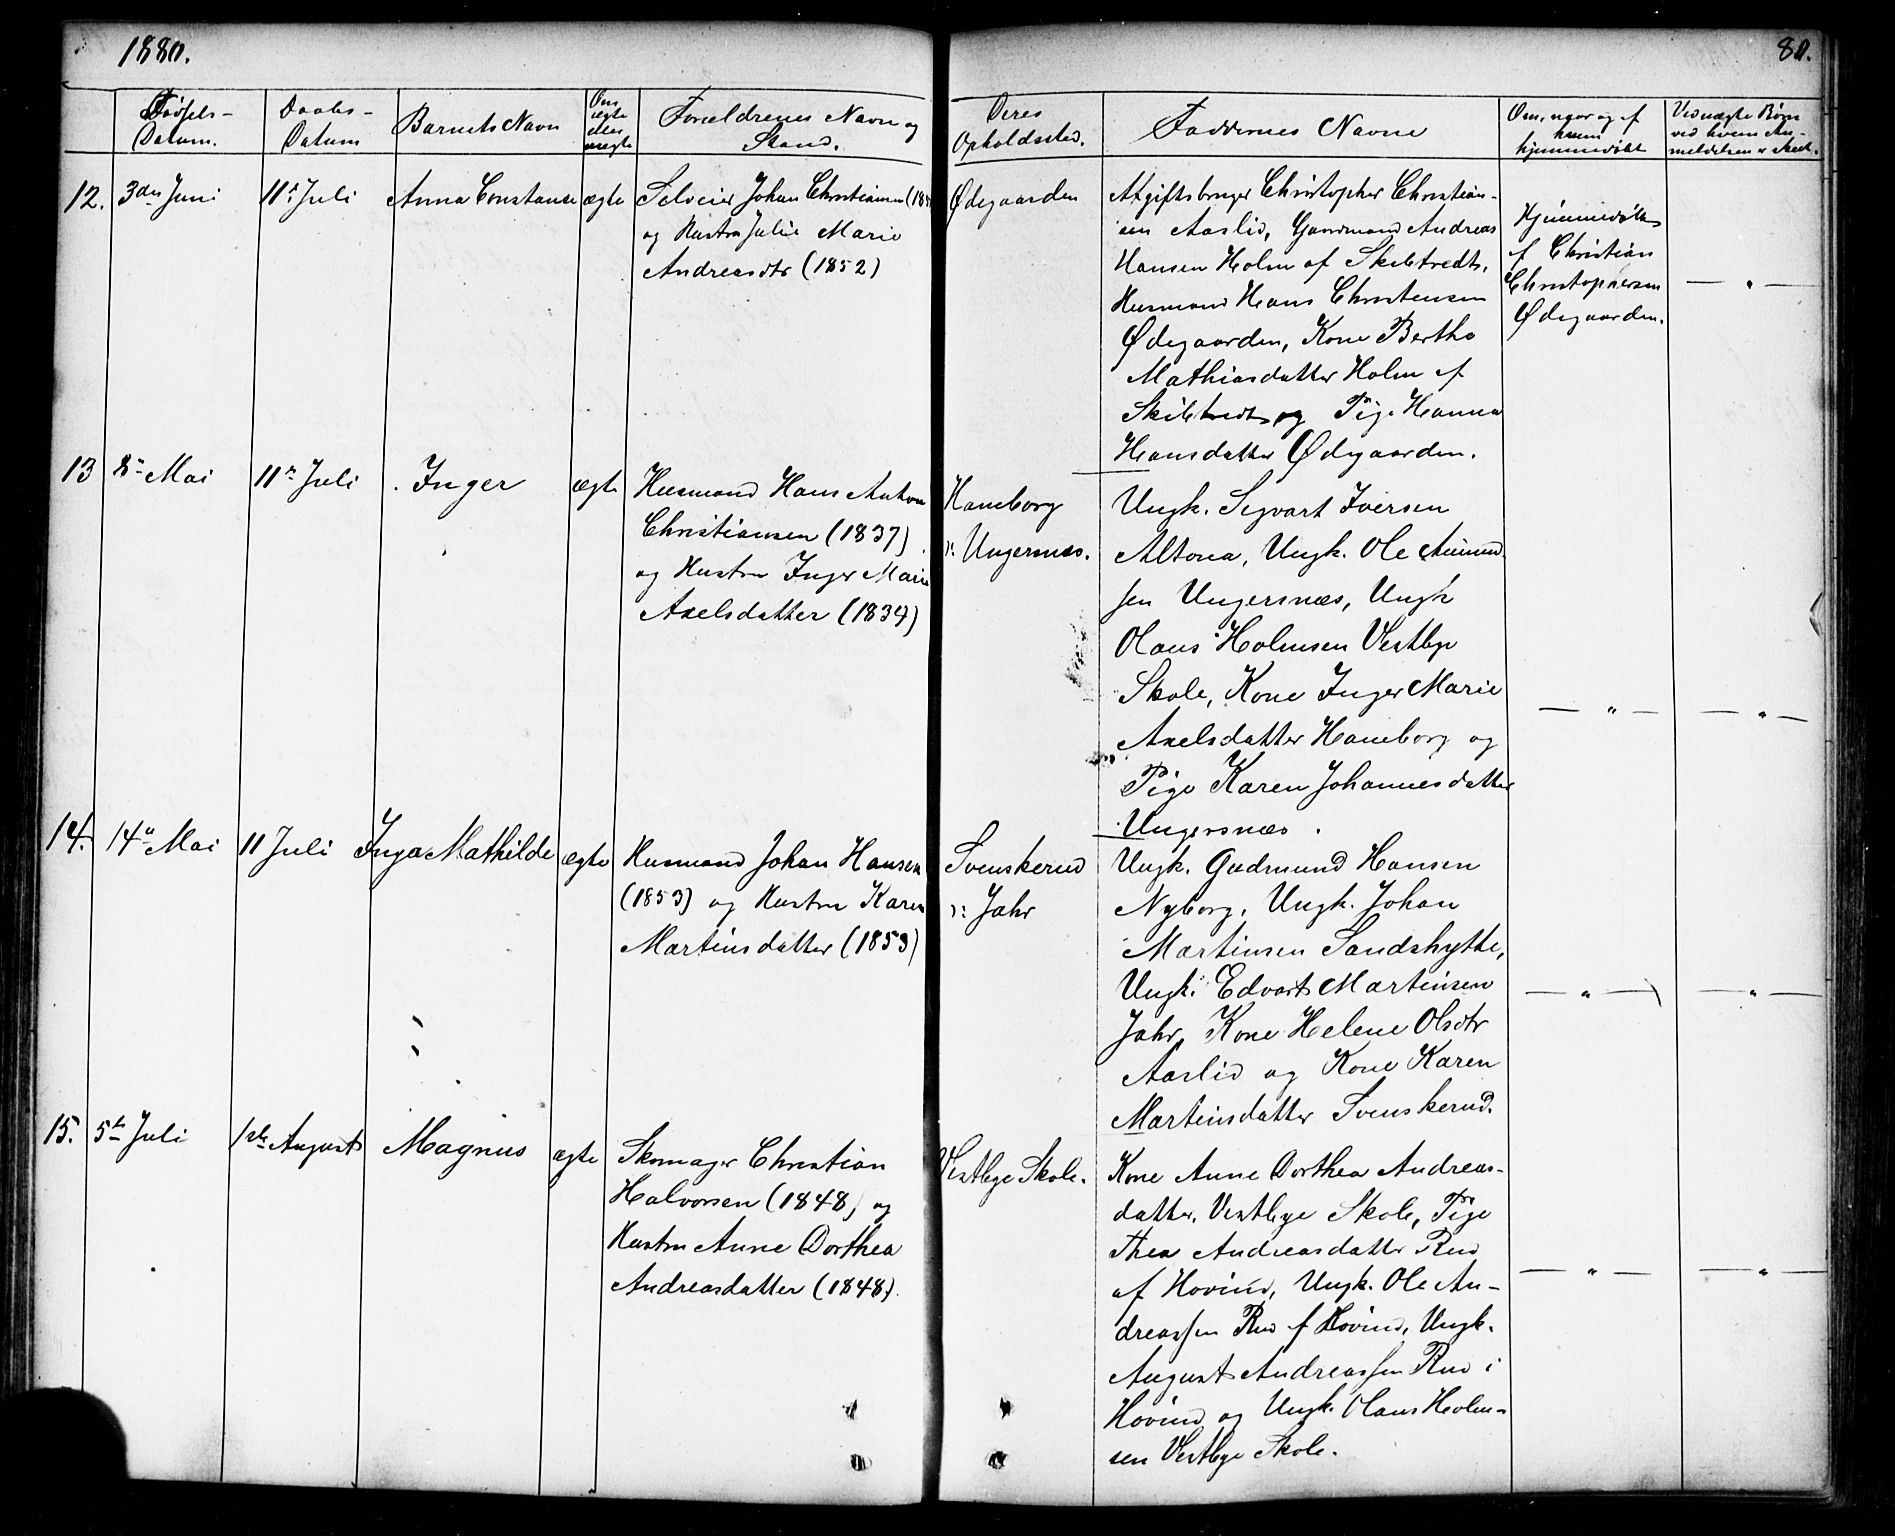 1880.
80.
Fødsels-
Datum.
Daabs-
Datum
Barnets Navn
Om
ægte
eller
uægte
Forældrenes Navn og
Stand.
Deres
Opholdssted.
Faddernes Navne
Om, naar og af
hvem
hjemmedøbt
Ved uægte Børn
ved hvem An-
meldelsen er skeet.
12.
3die Juni
11te Juli
Anna Constanse
ægte
Selveier Johan Christiansen
og Hustru Julie Marie
Andreasdtr (1852)
Ødegaarden
Afgiftsbruger Christopher Christian-
sen Aaslid, Gaardmand Andreas
Hansen Holm af Skibtvedt,
Husmand Hans Christensen
Ødegaarden, Kone Berthe
Mathiasdatter Holm af
Skibtvedt og Pige Hanna
Hansdatter Ødegaarden.
Hjemmedøbt
af Christian
Christophersen
Ødegaarden.
— " —
13
8de Mai
11te Juli
Inger
ægte
Husmand Hans Anton
Christiansen (1837)
og Hustru Inger Marie
Axelsdatter (1834)
Haneborg
": Ungersnes.
Ungk. Sigvart Iversen
Altona, Ungk. Ole Amund
sen Ungersnæs, Ungk
Olaus Holmsen Vestbye
Skole, Kone Inger Marie
Axelsdatter Haneborg og
Pige Karen Johannesdatter
Ungersnæs.
— " —
— " —
14.
14de Mai
11 Juli
Inga Mathilde
ægte
Husmand Johan Hansen
(1853) og Hustru Karen
Martinsdatter (1853)
Svenskerud
": Jahr
Ungk. Gudmund Hansen
Nyborg, Ungk. Johan
Martinsen Sandshytte,
Ungk. Edvart Martinsen
Jahr, Kone Helene Olsdtr
Aaslid og Kone Karen
Martinsdatter Svenskerud.
— " —
— " —
15.
5te Juli
1ste August
Magnus
ægte
Skomager Christian
Halvorsen (1848) og
Hustru Anne Dorthea
Andreasdatter (1848).
Vestbye Skole.
Kone Anne Dorthea Andreas-
datter, Vestbye Skole, Pige
Thea Andreasdatter Rud
af Hovind, Ungk. Ole An-
dreassen Rud af Hovind, Ungk.
August Andreassen Rud i
Hovind og Ungk. Olaus Holm-
sen Vestbye Skole.
— " —
— " —